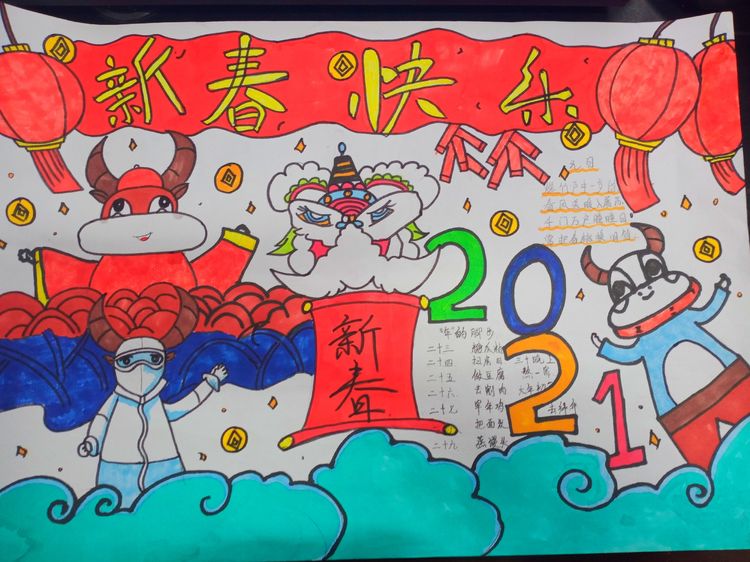 新春快乐
元日
爆竹声中一岁除
春风送暖入屠苏
千门万户曈曈日
总把新桃换旧符
2021
新春
二十三 糖瓜粘
二十四 扫房日 三十晚上
二十五 做豆腐 熬一宵
二十六 去割肉 大年初一
二十七 宰年鸡 去拜年
把面发
二十九 蒸馒头